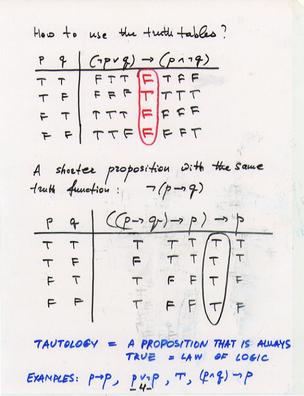 How to use the truth tables?
p q (¬p∨q) → (p∧¬q)
T T F T T F T F F
T F F F F T T T T
F T T T T F F F F
F F T T F F F F T
A shorter proposition with the same
truth function: ¬(p→q)
p q ((p→q)→p)→p
T T T T T T T
T F F T T T T
F T T F F T F
F F T F F T F
TAUTOLOGY = A PROPOSITION THAT IS ALWAYS
TRUE = LAW OF LOGIC
EXAMPLES: p→p, p∨¬p, T, (p∧q)→p
-4-